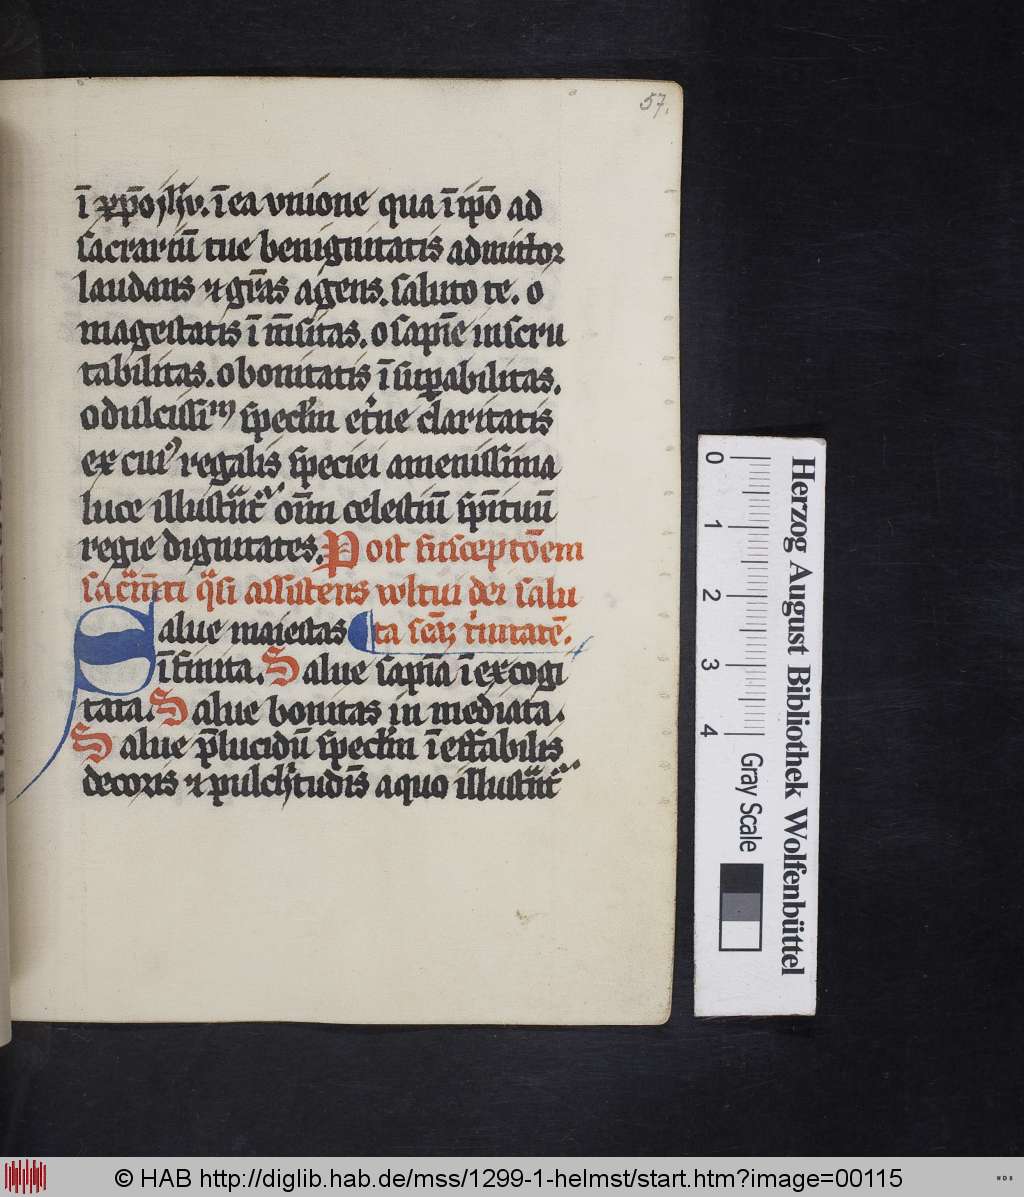 57.
ī xp̄o ih̄u. ī ea vnione qua ī ip̄o ad
sacrariū tue benignitatis admittor
laudans ⁊ gr̄as agens. saluto te. o
magestatis ī m̄sitas. o sapīe inscru
tabilitas. o bonitatis ī suꝑabilitas.
o dulcissiᵐ specłm et̄ne claritatis
ex cuiꝰ regalis speciei amenissima
luce illustͣnt᷑ om̄n celestiū sp̄ituū
regie dignitates. Post susceptōem
sacͣm̄ti qͣsi assistens vultui dei salu
Salue maiestas ta sc̄ā tͥnitatē.
īfinita. Salue sapīa ī excogi
tata. Salue bonitas in mediata.
Salue p̄lucidū specłm ī effabilis
decoris ⁊ pulcħtudīs a quo illustͣnt᷑
Herzog August Bibliothek Wolfenbüttel
0 1 2 3 4
Gray Scale
© HAB http://diglib.hab.de/mss/1299-1-helmst/start.htm?image=00115